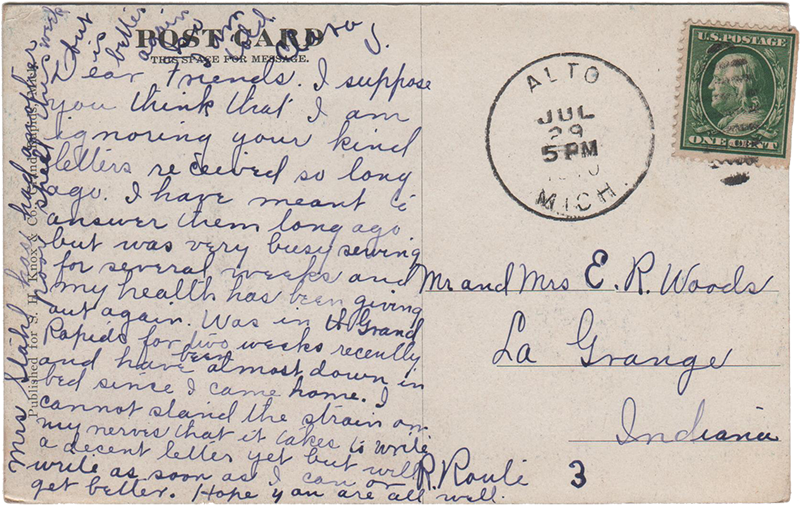 POST CARD
THIS SPACE FOR MESSAGE.
Dear Friends. I suppose
you think that I am
ignoring your kind
letters received so long
ago. I have meant to
answer them long ago
but was very busy sewing
for several weeks and
my health has been giving
out again. Was in Grand
Rapids for two weeks recently
and have been almost down in
bed since I came home. I
cannot stand the strain on
my nerves that it takes to write
a decent letter yet but will
write as soon as I can or
get better. Hope you are all well.
Mrs Stahl has had another
poor spell this week
but is better again
Published for S. H. Knox & Co.
ALTO
JUL
29
5 PM
MICH
U.S. POSTAGE
ONE CENT
Mr and Mrs E. R. Woods
La Grange
Indiana
R. Route 3